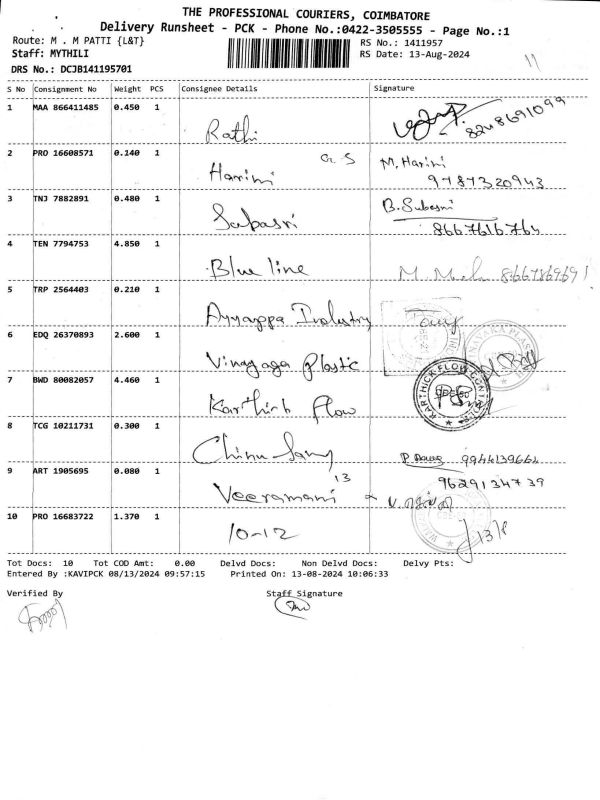 THE PROFESSIONAL COURIERS, COIMBATORE
Delivery Runsheet - PCK - Phone No.:0422-3505555 - Page No.:1
Route: M . M PATTI {L&T} RS No.: 1411957
Staff: MYTHILI RS Date: 13-Aug-2024
11
DRS No.: DCJB141195701
S No Consignment No Weight PCS Consignee Details Signature
1 MAA 866411485 0.450 1
Rathi 8248691099
2 PRO 16608571 0.140 1
G.S M. Harini
Harini 9787320943
3 TNJ 7882891 0.480 1
B. Subasri
Sabasri 8667616764
4 TEN 7794753 4.850 1
Blue line
5 TRP 2564403 0.210 1
Ayyappa Industry
6 EDQ 26370893 2.600 1
Vinayaga Plastic
7 BWD 80082057 4.460 1
Karthick Flow
KARTHICK FLOW CONTROL
8 TCG 10211731 0.300 1
Chinu Samy 9944139661
9 ART 1905695 0.080 1
13 9629134739
Veeramani
10 PRO 16683722 1.370 1
10-12
Tot Docs: 10 Tot COD Amt: 0.00 Delvd Docs: Non Delvd Docs: Delvy Pts:
Entered By :KAVIPCK 08/13/2024 09:57:15 Printed On: 13-08-2024 10:06:33
Verified By Staff Signature